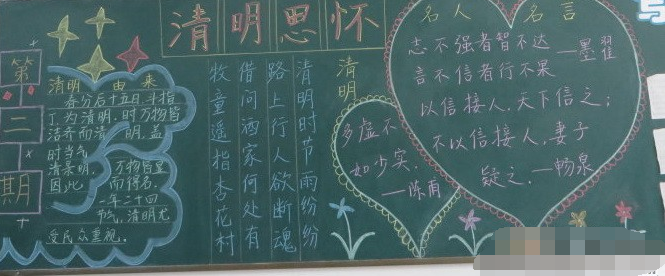 清明思怀
第二期
清明由来
春分后十五日,斗指
丁,为清明,时万物皆
洁齐而清明,盖
时当气
清景明,万物皆显
因此而得名。
一年二十四
节气,清明尤
受民众重视。
清明
清明时节雨纷纷
路上行人欲断魂
借问酒家何处有
牧童遥指杏花村
名人名言
志不强者智不达
言不信者行不果
——墨翟
以信接人,天下信之;
不以信接人,妻子
疑之。——畅泉
多虚不
如少实。
——陈甫